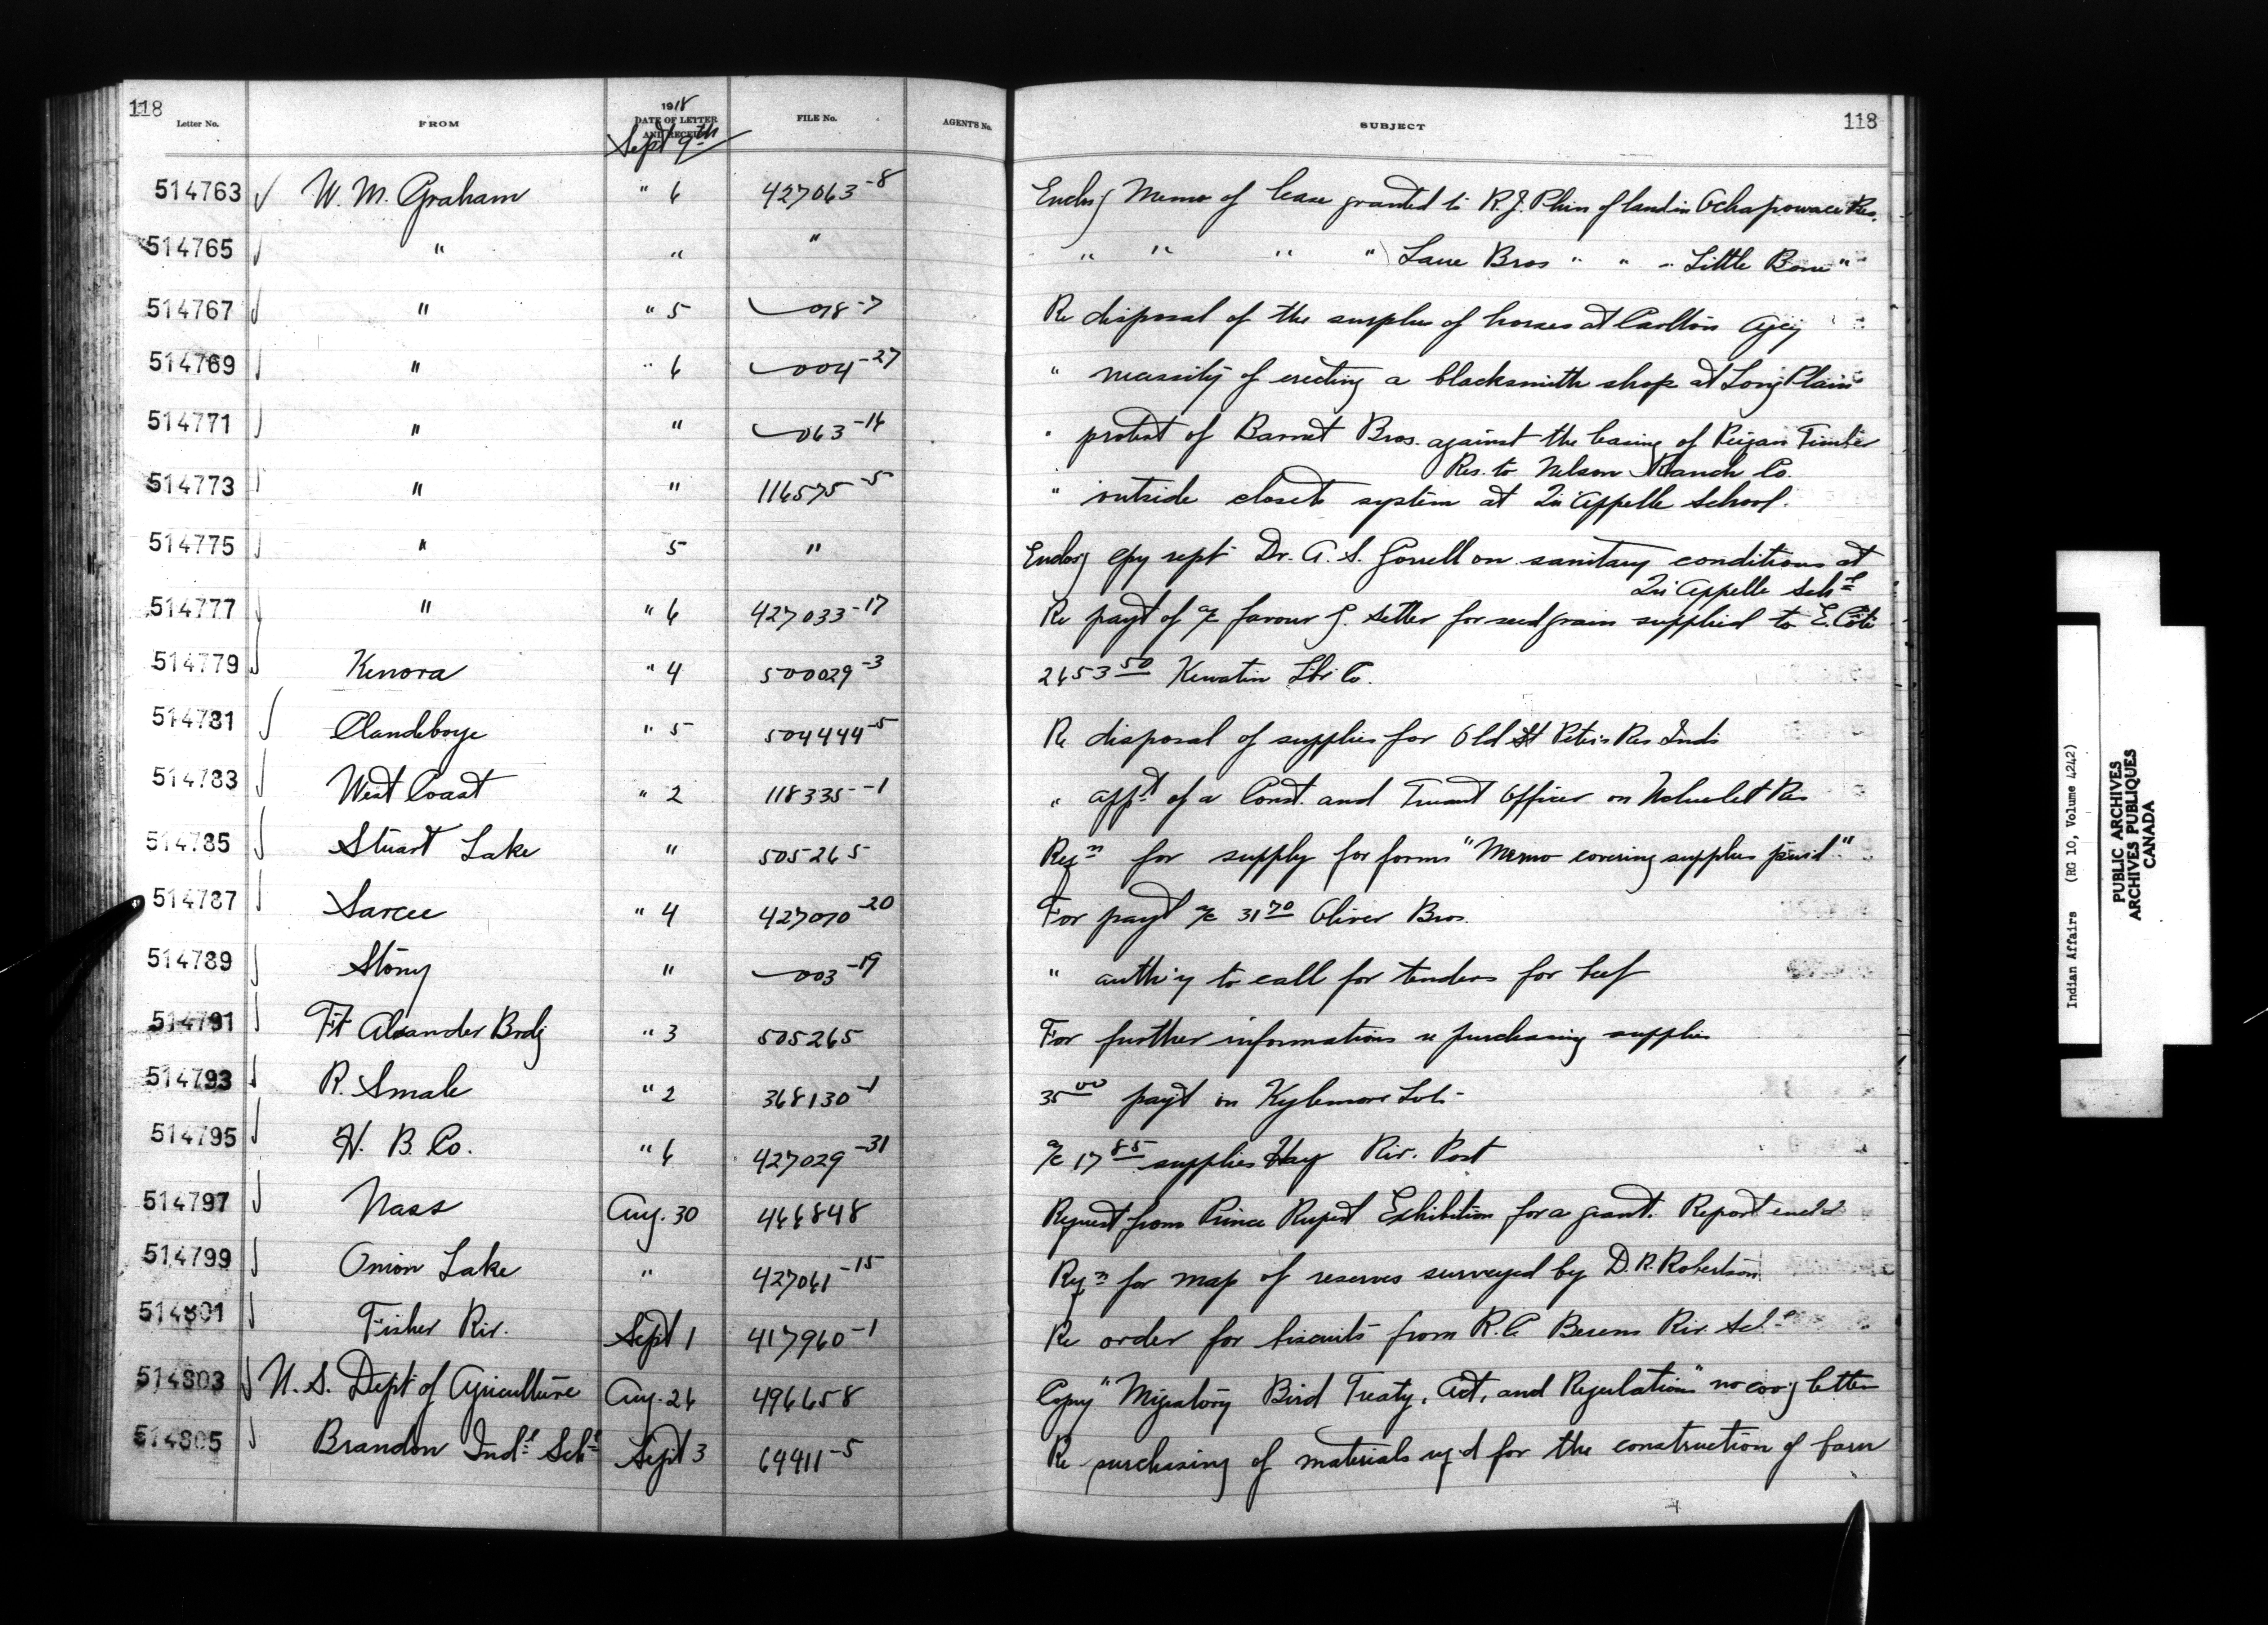 118
Letter No. FROM 1918 DATE OF LETTER AND RECEIPT FILE No. AGENT'S No. SUBJECT 118
Sept 9th
514763 W. M. Graham " 6 427063-8 Enclsg Memo of lease granted to R.J. Phin of land in Ochapowace Res.
514765 " " " " " " " Lane Bros " " " Little Bone "
514767 " " 5 018-7 Re disposal of the surplus of horses at Carlton Agcy
514769 " " 6 004-27 " necessity of erecting a blacksmith shop at Long Plain
514771 " " 063-14 " protest of Barnet Bros. against the leasing of Peigan Timber
Res. to Nelson Ranch Co.
514773 " " 116575-5 " outside closet system at Qu'Appelle School.
514775 " 5 " Enclosg cpy rept Dr. A. S. Gorrell on sanitary conditions at
Qu'Appelle Schl
514777 " " 6 427033-17 Re payt of a/c favour J. Setter for seed grain supplied to E. Côté
514779 Kenora " 4 500029-3 2653 50 Kewatin Lbr Co.
514781 Clandeboye " 5 504444-5 Re disposal of supplies for Old St Peters Res Inds
514783 West Coast " 2 118335-1 " appt of a Const. and Truant Officer on Ucluelet Res
514785 Stuart Lake " 505265 Reqn for supply for forms "Memo covering supplies purd"
514787 Sarcee " 4 427070-20 For payt a/c 31 70 Oliver Bros.
514789 Stony " 003-19 " auth'y to call for tenders for beef
514791 Ft Alexander Brdg " 3 505265 For further informations re purchasing supplies
514793 R. Smale " 2 368130-1 35 00 payt on Kylemore Lot
514795 H. B. Co. " 6 427029-31 a/c 17 85 supplies Hay Riv. Post
514797 Nass Aug. 30 466848 Request from Prince Rupert Exhibition for a grant. Report encl'd
514799 Onion Lake " 427061-15 Reqn for map of reserves surveyed by D. R. Robertson
514801 Fisher Riv. Sept 1 417960-1 Re order for biscuits from R.C. Berens Riv. Schl
514803 U. S. Dept of Agriculture Aug. 26 496658 Copy "Migratory Bird Treaty, Act, and Regulations" no covg letter
514805 Brandon Indl Schl Sept 3 64411-5 Re purchasing of materials req'd for the construction of barn
Indian Affairs (RG 10, Volume 4242)
PUBLIC ARCHIVES
ARCHIVES PUBLIQUES
CANADA